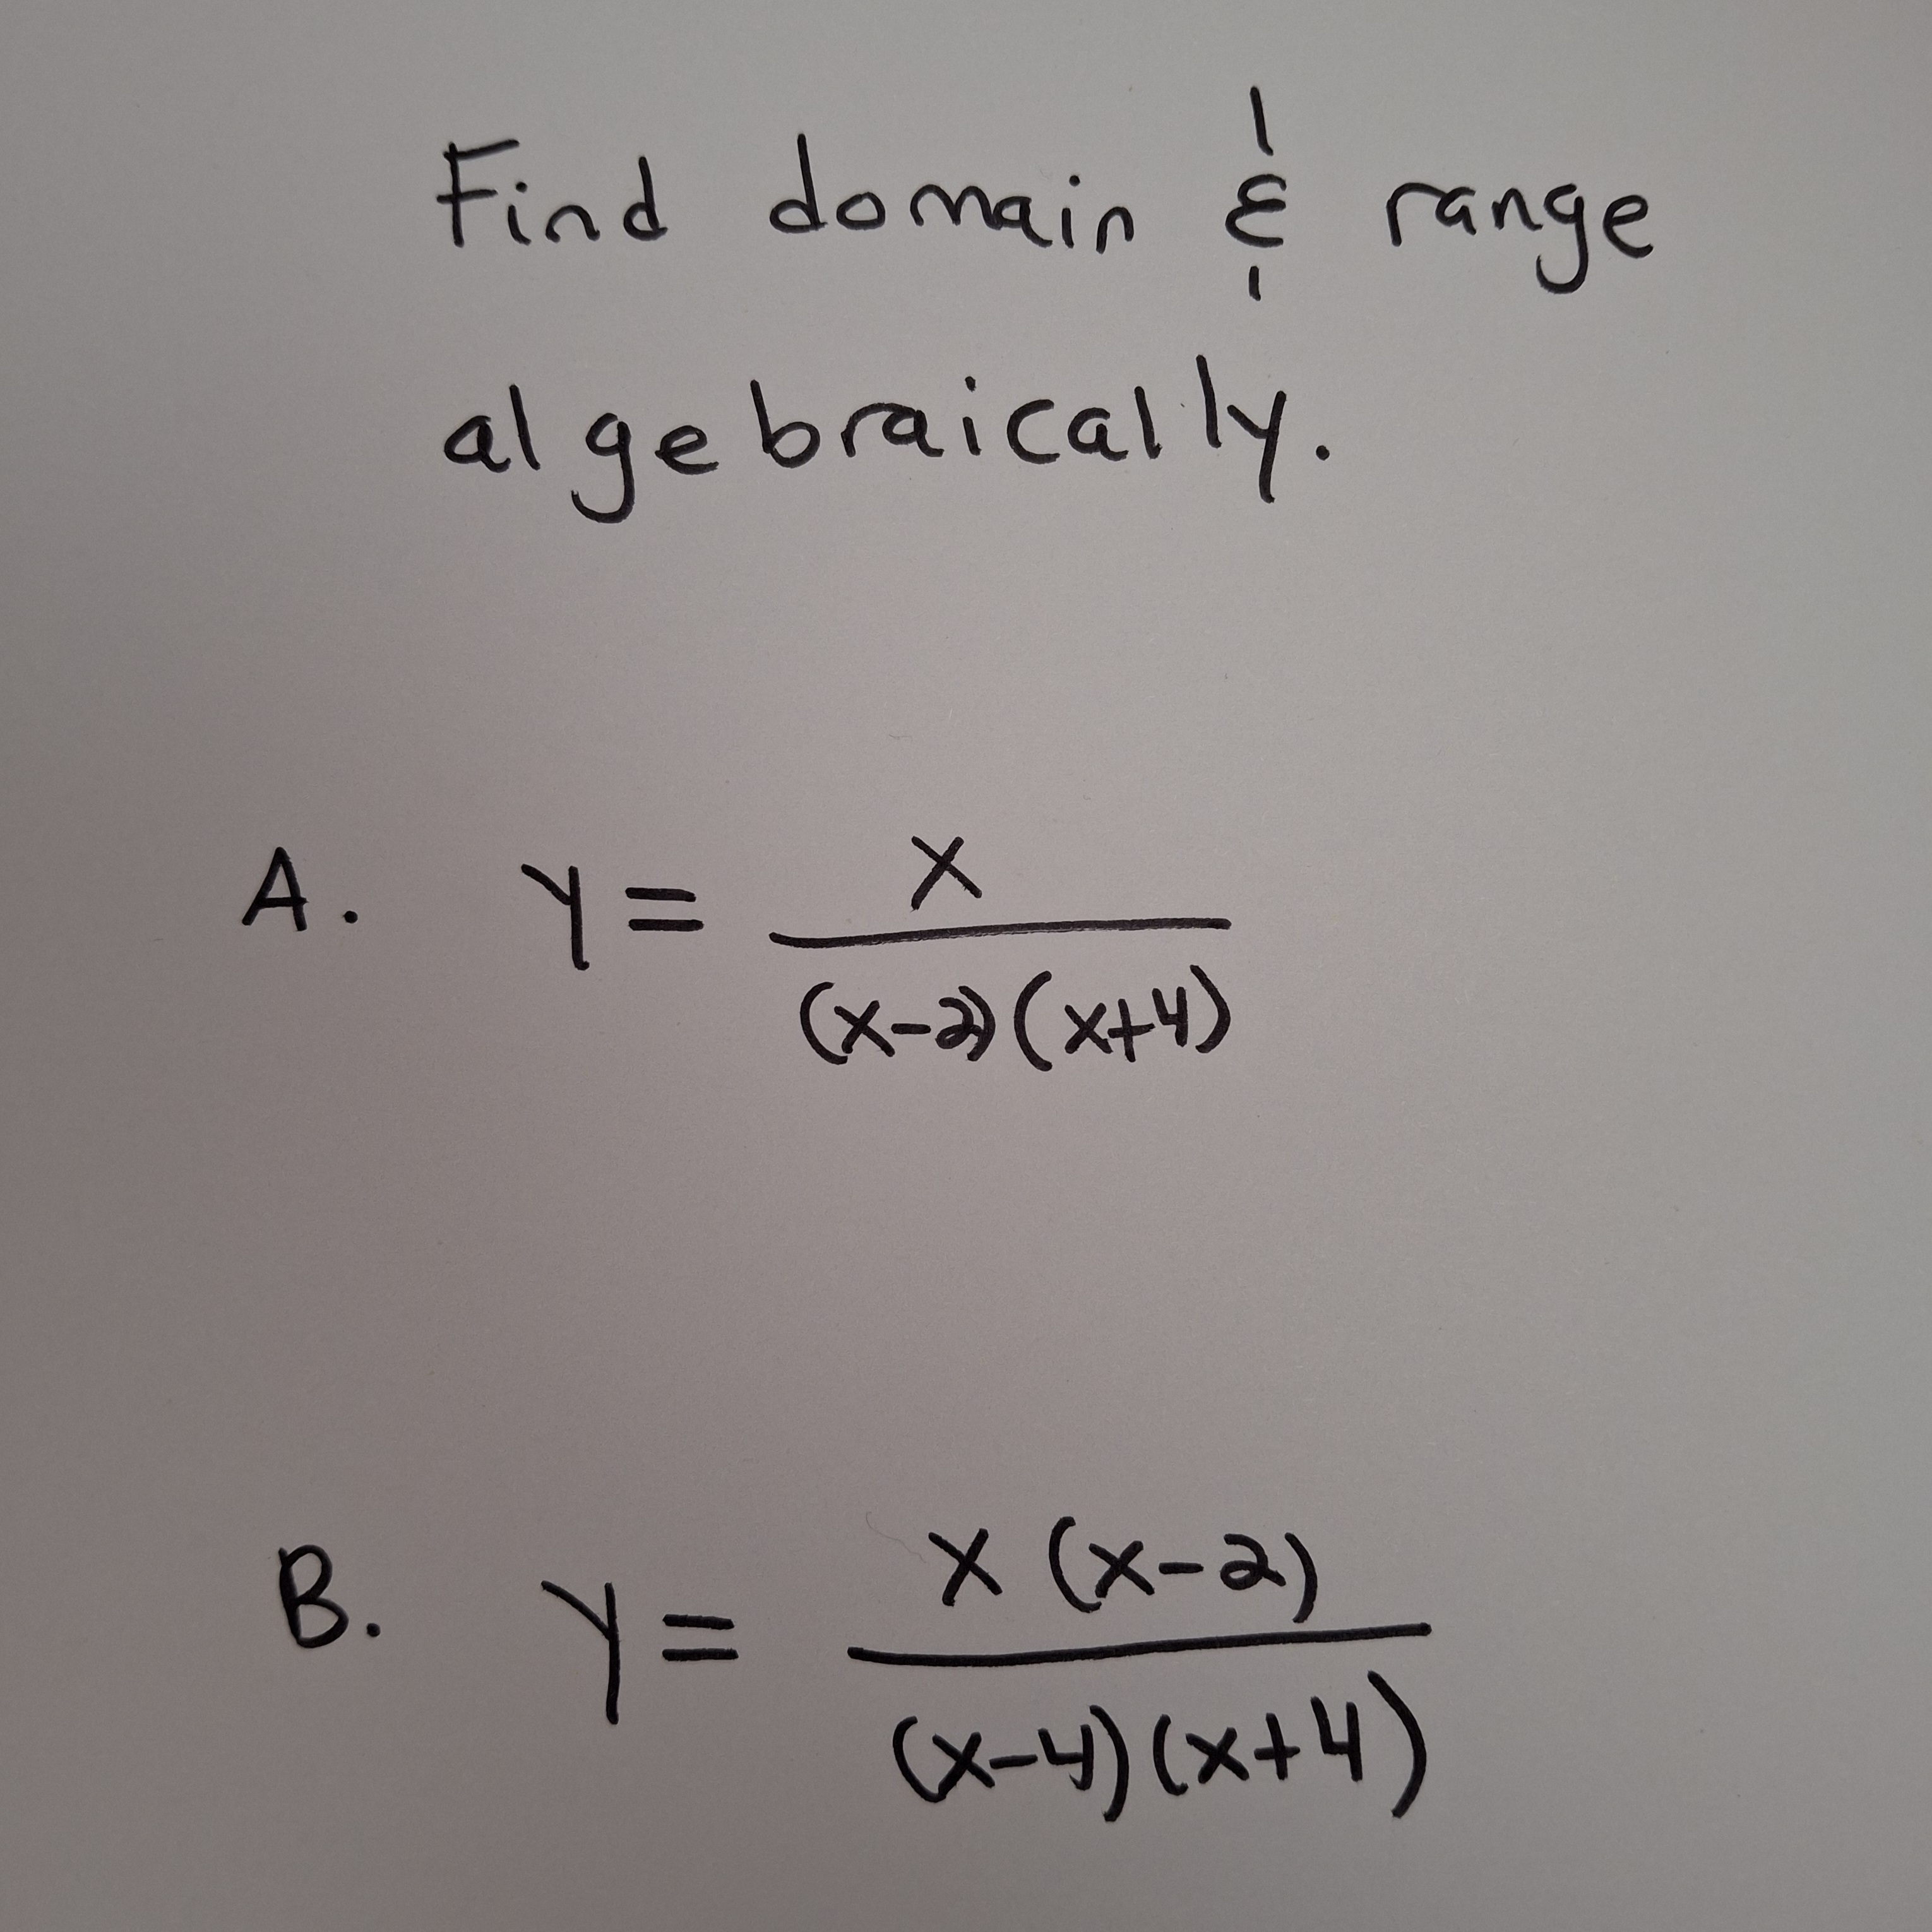 Find domain & range
algebraically.
A. y = x / (x-2)(x+4)
B. y = x (x-2) / (x-4)(x+4)